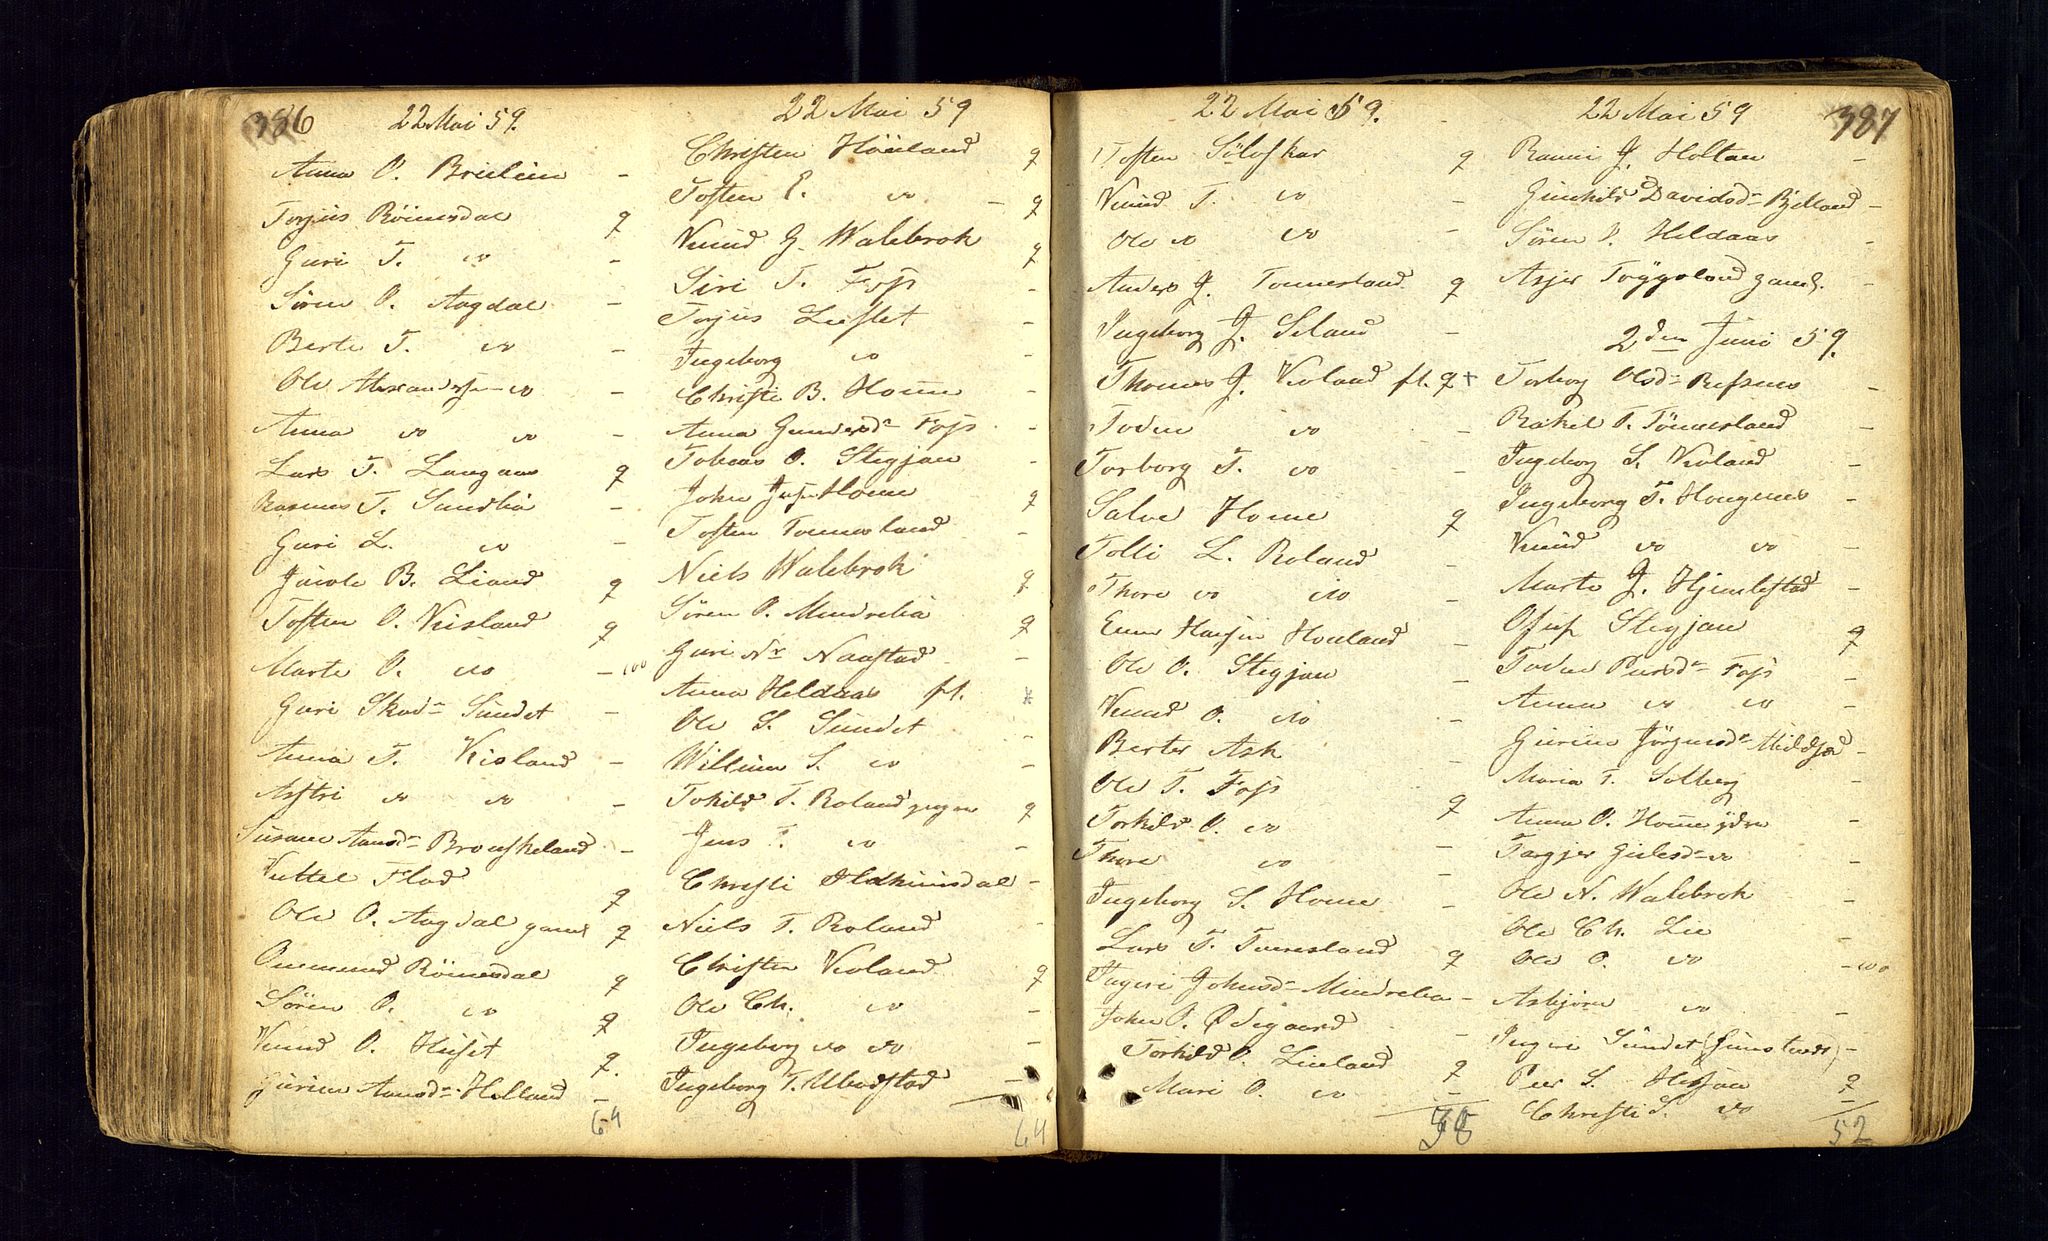 386
22 Mai 59.
Anna O. Brielien -
Torjus Röinesdal q
Guri T. do -
Sören O. Aagdal -
Berte T. do -
Ole Alexandersen do -
Anna do do -
Lars T. Langaas q
Rasmus T. Sandlia -
Guri L. do -
Jacob B. Liand q
Tosten O. Veisland q
Marte O. do -
Guri Sund=t
Anna T. Veisland -
Astri do do -
Susane Aansd= Brouskeland -
Vettel Flad q
Ole O. Aagdal gaml q
Ommund Röinesdal q
Sören O. do q
Knud O. Huset q.
Guriue Aansd= Helland -
64
22 Mai 59
Christen Höiland q
Tosten P. do - q
Knud G. Walebrok q
Siri T. Foss -
Torjus Lieslet -
Ingeborg do -
Christi B. Home -
Anna Gundersd= Foss -
Tobias O. Stegjan -
John Home q
Tosten Tonnesland -
Niels Walebrok q
Sören O. Mindrelia q
Guri Naastad -
Anna Heldaas ft.
Ole S. Sundet -
Willum S. do -
Tokild T. Roland yngre q
Jens T. do -
Christi -
Niels T. Roland -
Christen Veoland q
Ole Ch. do -
Ingeborg do do -
Ingeborg T. Ubostad -
64
22 Mai 59.
Tosten Sölvskar q
Knud T. do -
Ole do do -
Anders J. Tonnesland q
Ingeborg J. Seland -
Thomas J. Veoland ft. q +
Todne do -
Torborg T. do -
Salve Home q
Tolli L. Roland -
Thore do do -
Houland -
Ole O. Stegjan -
Knud O. do -
Berte Ask -
Ole T. Foss q
Torkild O. do -
Thore do -
Ingeborg S. Home -
Lars T. Tveresland q
Ingeri Johnsd= Mindrelia -
John P. Ødegaard -
Torkild O. Lieland q
Mari O. do -
58
387
22 Mai 59
J. Holtan -
Gunhild Davidsd= Bjelland -
Sören P. Heldaas -
Asjer Tryggsland gaml. -
2den Juni 59.
Torborg Olsd= -
Rakel T. Tönnesland -
Ingeborg S. Veoland -
Ingeborg T. Hougenes -
Knud do do -
Marte J. Hjemlestad -
Osuf Stegjan q
Todne Peersd= Foss -
Anna do do -
Gurine Jörgensd= -
Maria T. Solberg -
Anna O. Home ydre -
Targjer do -
Ole N. Walebrok -
Ole Ch. Lie -
Ole O. do -
Asbjörn do -
Ingri Sundet -
Peer S. q
Christi S. do -
52